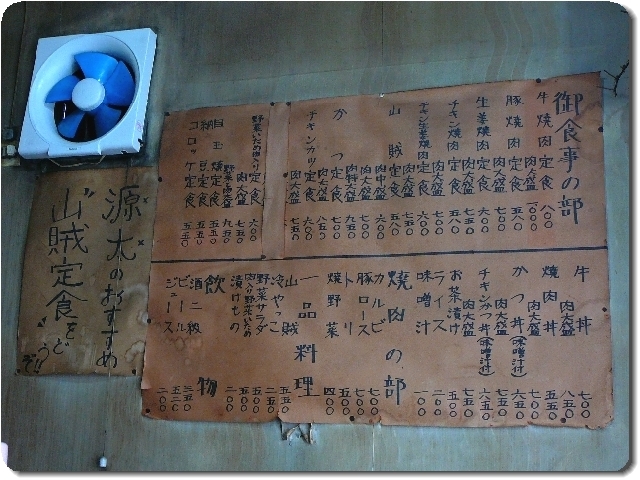 御食事の部
牛焼肉定食 八〇〇
肉大盛 一〇〇〇
豚焼肉定食 五八〇
肉大盛 七〇〇
生姜焼定食 六〇〇
肉大盛 七五〇
チキン焼肉定食 五五〇
肉大盛 七〇〇
チキン生姜焼肉定食 六〇〇
肉大盛 七五〇
山賊定食 五八〇
肉大盛 七〇〇
肉中盛 六五〇
かつ定食
肉大盛 八五〇
チキンカツ定食 六〇〇
肉大盛 七五〇
野菜いため肉入り定食 六〇〇
肉大盛 七五〇
目玉焼定食 五五〇
納豆定食 五五〇
コロッケ定食 五五〇
牛丼 七〇〇
肉大盛 八五〇
焼肉丼 五五〇
肉大盛 七〇〇
かつ丼(味噌汁付) 六五〇
肉大盛
チキンかつ丼(味噌汁付) 六五〇
肉大盛 七五〇
お茶漬け 五五〇
ライス 二〇〇
味噌汁 一〇〇
焼肉の部
カルビ 七〇〇
豚ロース 七〇〇
トリ 五〇〇
焼野菜 四〇〇
一品料理
山賊 五五〇
冷やっこ 二五〇
野菜サラダ
肉入り野菜いため 五五〇
漬けもの 二〇〇
飲物
酒二級 三五〇
ビール 五二〇
ジュース 二〇〇
源太のおすすめ
山賊定食をどうぞ!!